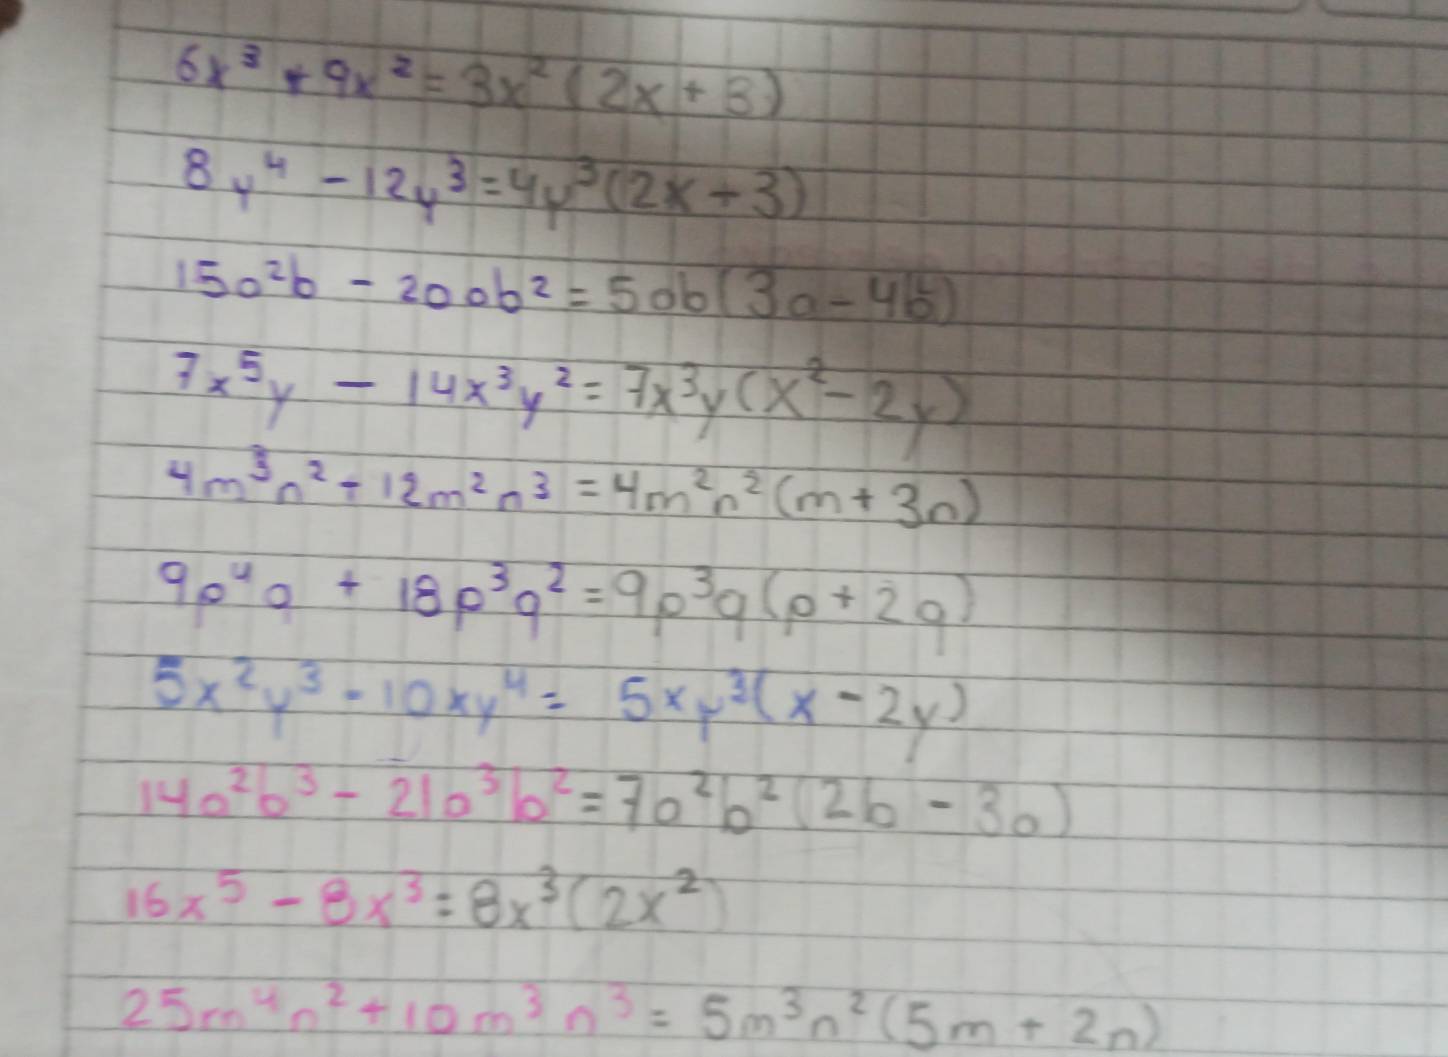 6x³ + 9x² = 3x² (2x + 3)
8y⁴ - 12y³ = 4y³ (2x + 3)
15a²b - 20ab² = 5ab (3a - 4b)
7x⁵y - 14x³y² = 7x³y (x² - 2y)
4m³n² + 12m²n³ = 4m²n² (m + 3n)
9p⁴q + 18p³q² = 9p³q (p + 2q)
5x²y³ - 10xy⁴ = 5xy³ (x - 2y)
14a²b³ - 21a³b² = 7a²b² (2b - 3a)
16x⁵ - 8x³ = 8x³ (2x²)
25m⁴n² + 10m³n³ = 5m³n² (5m + 2n)